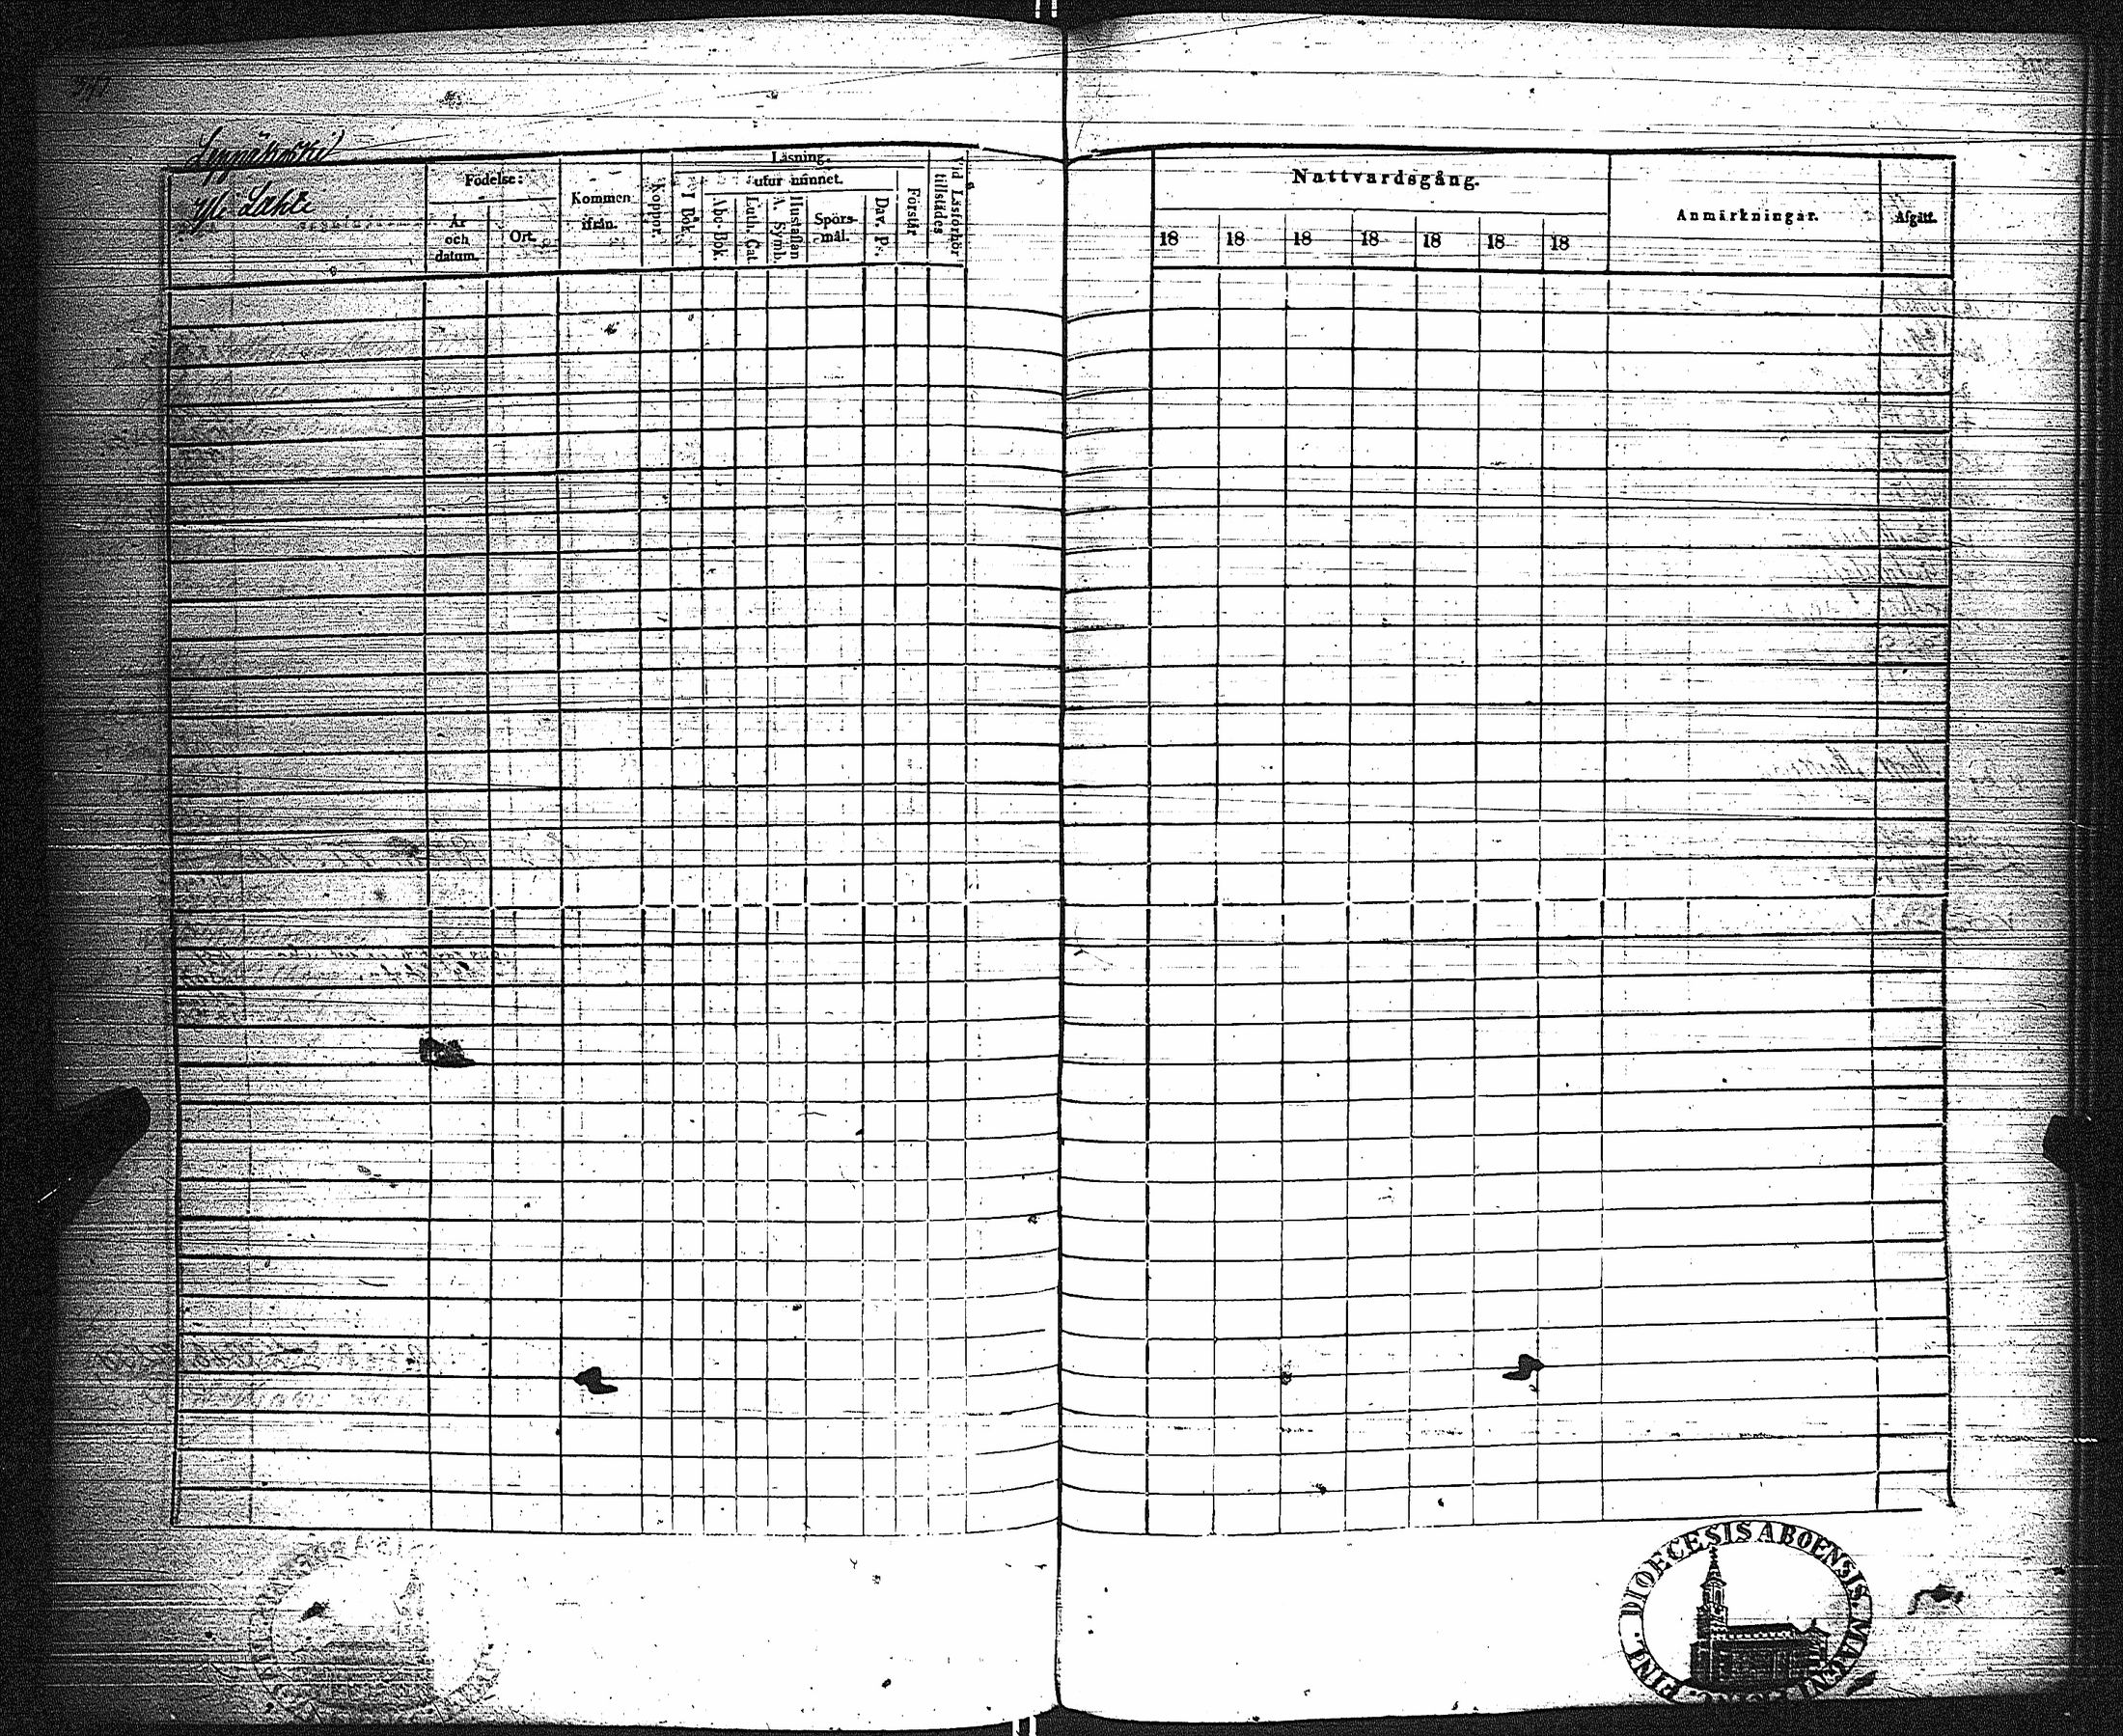 Leppäkoski
Yli Lahti
Födelse:
År och datum.
Ort.
Kommen ifrån.
Koppor.
Läsning.
I Bok.
utur minnet.
Abc-Bok.
Luth. Cat.
Hustaflan A. Symb.
Spörs-mål.
Dav. P.
Förstår.
Vid Läsförhör tillstädes
Nattvardsgång.
18 18 18 18 18 18 18
Anmärkningar.
Afgått.
DIOECESIS ABOENSIS